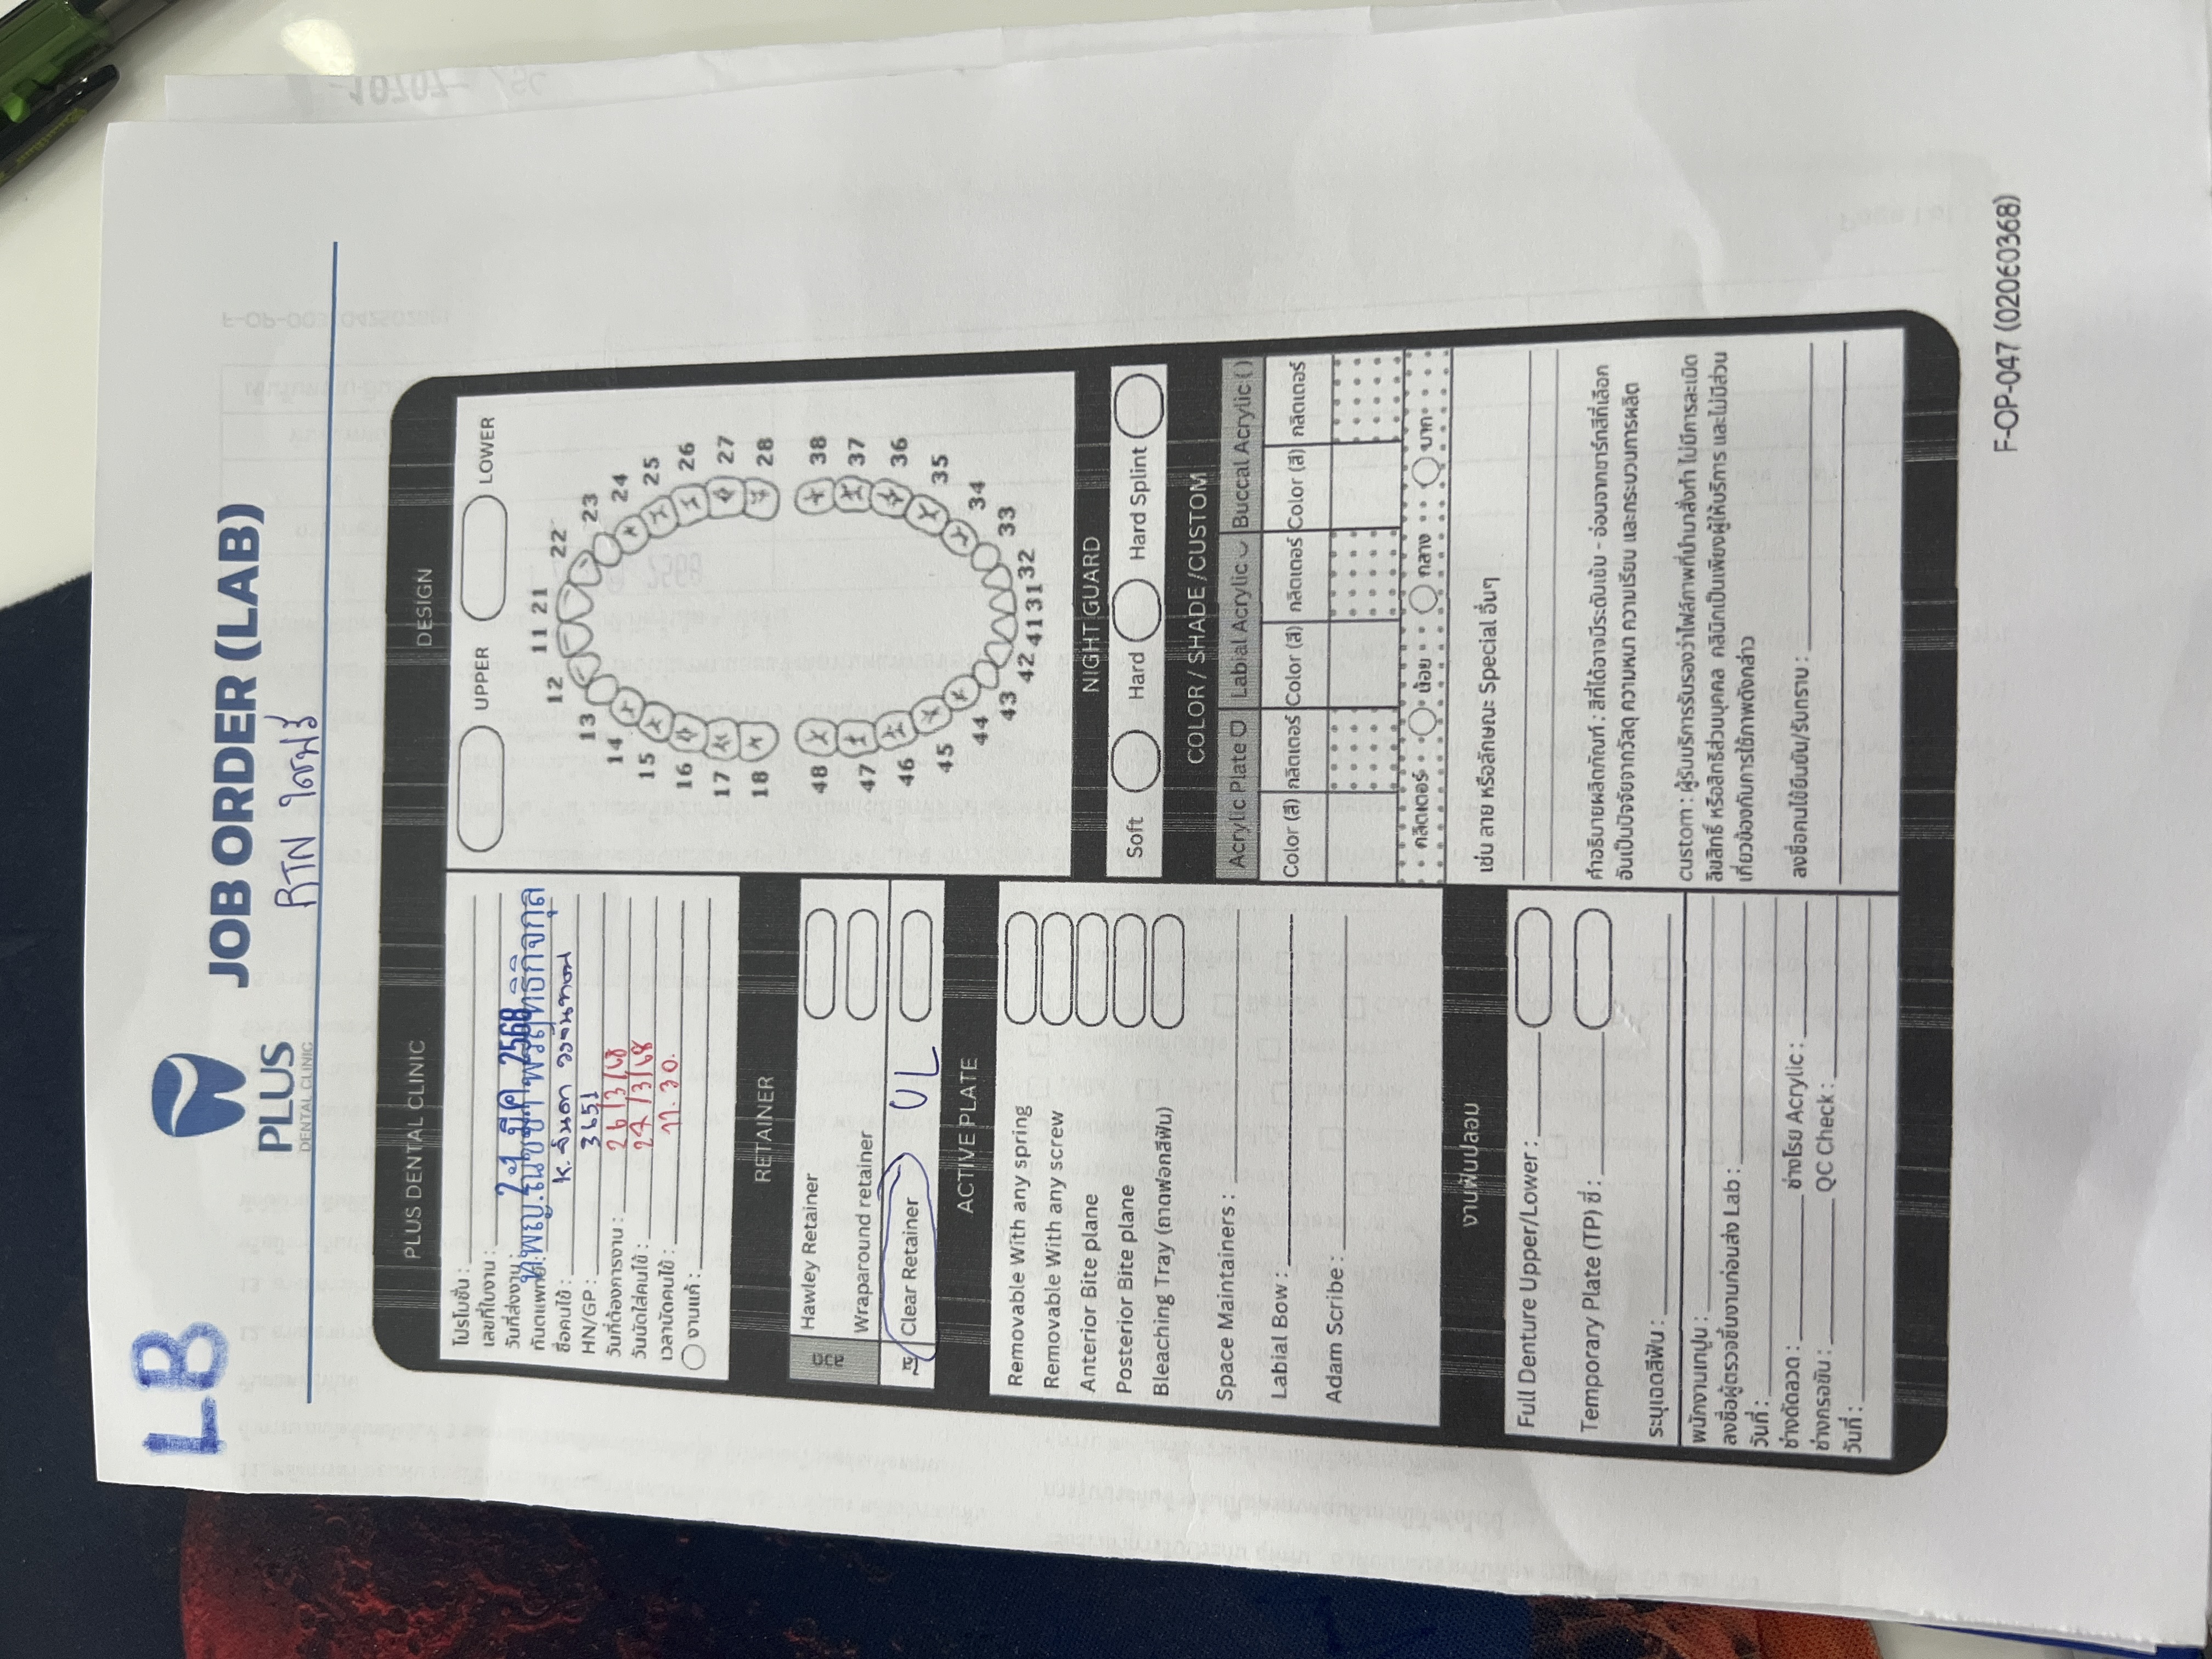 LB
PLUS
DENTAL CLINIC
JOB ORDER (LAB)
RTN ใสฟรี
PLUS DENTAL CLINIC
โปรโมชั่น :
เลขที่ใบงาน :
วันที่ส่งงาน : 2568
ทันตแพทย์ :
ชื่อคนไข้ :
HN/GP : 3651
วันที่ต้องการงาน : 26/3/68
วันนัดใส่คนไข้ : 27/3/68
เวลานัดคนไข้ : 17.30
งานแก้ :
RETAINER
Hawley Retainer
Wraparound retainer
ใส
Clear Retainer UL
ACTIVE PLATE
Removable With any spring
Removable With any screw
Anterior Bite plane
Posterior Bite plane
Bleaching Tray (ถาดฟอกสีฟัน)
Space Maintainers :
Labial Bow :
Adam Scribe :
งานฟันปลอม
Full Denture Upper/Lower :
Temporary Plate (TP) ซี่ :
ระบุเฉดสีฟัน :
พนักงานเทปูน :
ลงชื่อผู้ตรวจชิ้นงานก่อนส่ง Lab :
วันที่ :
ช่างดัดลวด : ช่างโรย Acrylic :
ช่างกรอขัน : QC Check :
วันที่ :
DESIGN
UPPER LOWER
11 21
12 22
13 23
14 24
15 25
16 26
17 27
18 28
48 38
47 37
46 36
45 35
44 34
43 33
42 41 31 32
NIGHT GUARD
Soft Hard Hard Splint
COLOR / SHADE /CUSTOM
Acrylic Plate Labial Acrylic Buccal Acrylic ( )
Color (สี) กลิตเตอร์ Color (สี) กลิตเตอร์ Color (สี) กลิตเตอร์
กลิตเตอร์ น้อย กลาง มาก
เช่น ลาย หรือลักษณะ Special อื่นๆ
คำอธิบายผลิตภัณฑ์ : สีที่ได้อาจมีระดับเข้ม - อ่อนจากชาร์ทสีที่เลือก
อันเป็นปัจจัยจากวัสดุ ความหนา ความเรียบ และกระบวนการผลิต
Custom : ผู้รับบริการรับรองว่าไฟล์ภาพที่นำมาสั่งทำ ไม่มีการละเมิด
ลิขสิทธิ์ หรือสิทธิส่วนบุคคล คลินิกเป็นเพียงผู้ให้บริการ และไม่มีส่วน
เกี่ยวข้องกับการใช้ภาพดังกล่าว
ลงชื่อคนไข้ยืนยัน/รับทราบ :
F-OP-047 (02060368)